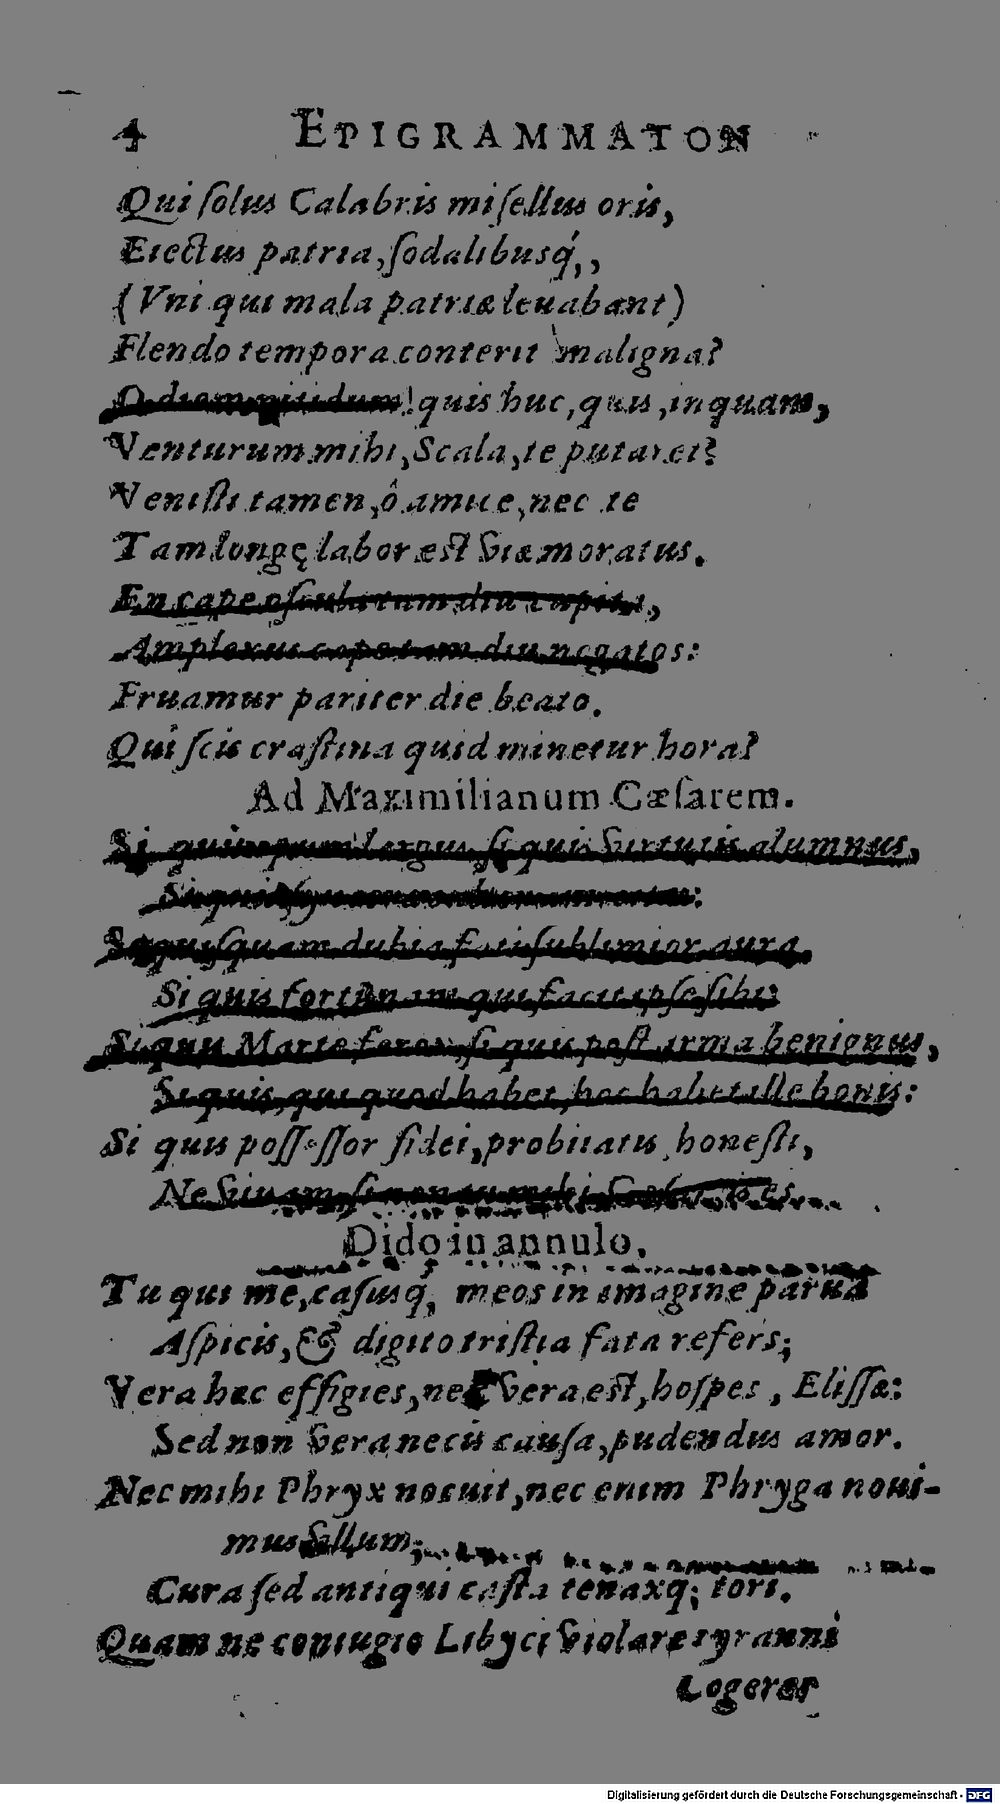 4 EPIGRAMMATON
Qui ſolus Calabris miſellus oris,
Eiectus patria, ſodalibusq́,,
(Vni qui mala patriæ leuabant)
Flendo tempora conterit maligna?
O diem nitidum! quis huc, quis, inquam,
Venturum mihi, Scala, te putaret?
Veniſti tamen, ô amice, nec te
Tam longę labor eſt viæ moratus.
En cape oſcula tam diu cupita,
Amplexus cape tam diu negatos:
Fruamur pariter die beato.
Qui ſcis craſtina quid minetur hora?
Ad Maximilianum Cæſarem.
Si quis opum largus, ſi quis virtutis alumnus,
Si quis
Si quiſquam dubia ſublimior aura,
Si quis fortunam qui facit ipſe ſibi:
Si quis Marte ferox, ſi quis poſt arma benignus,
Si quis, qui quod habet, hoc habet ille bonis:
Si quis poſſeſſor fidei, probitatis, honeſti,
Ne viuam, ſi non tu mihi es.
Dido in annulo.
Tu qui me, caſusq, meos in imagine parua
Aſpicis, & digito triſtia fata refers;
Vera hæc effigies, nec vera eſt, hoſpes, Eliſſæ:
Sed non vera necis cauſa, pudendus amor.
Nec mihi Phryx nocuit, nec enim Phryga noui-
mus vllum;
Cura ſed antiqui caſta tenaxq; tori.
Quam ne coniugio Libyci violare tyranni
Cogerer
Digitalisierung gefördert durch die Deutsche Forschungsgemeinschaft - DFG